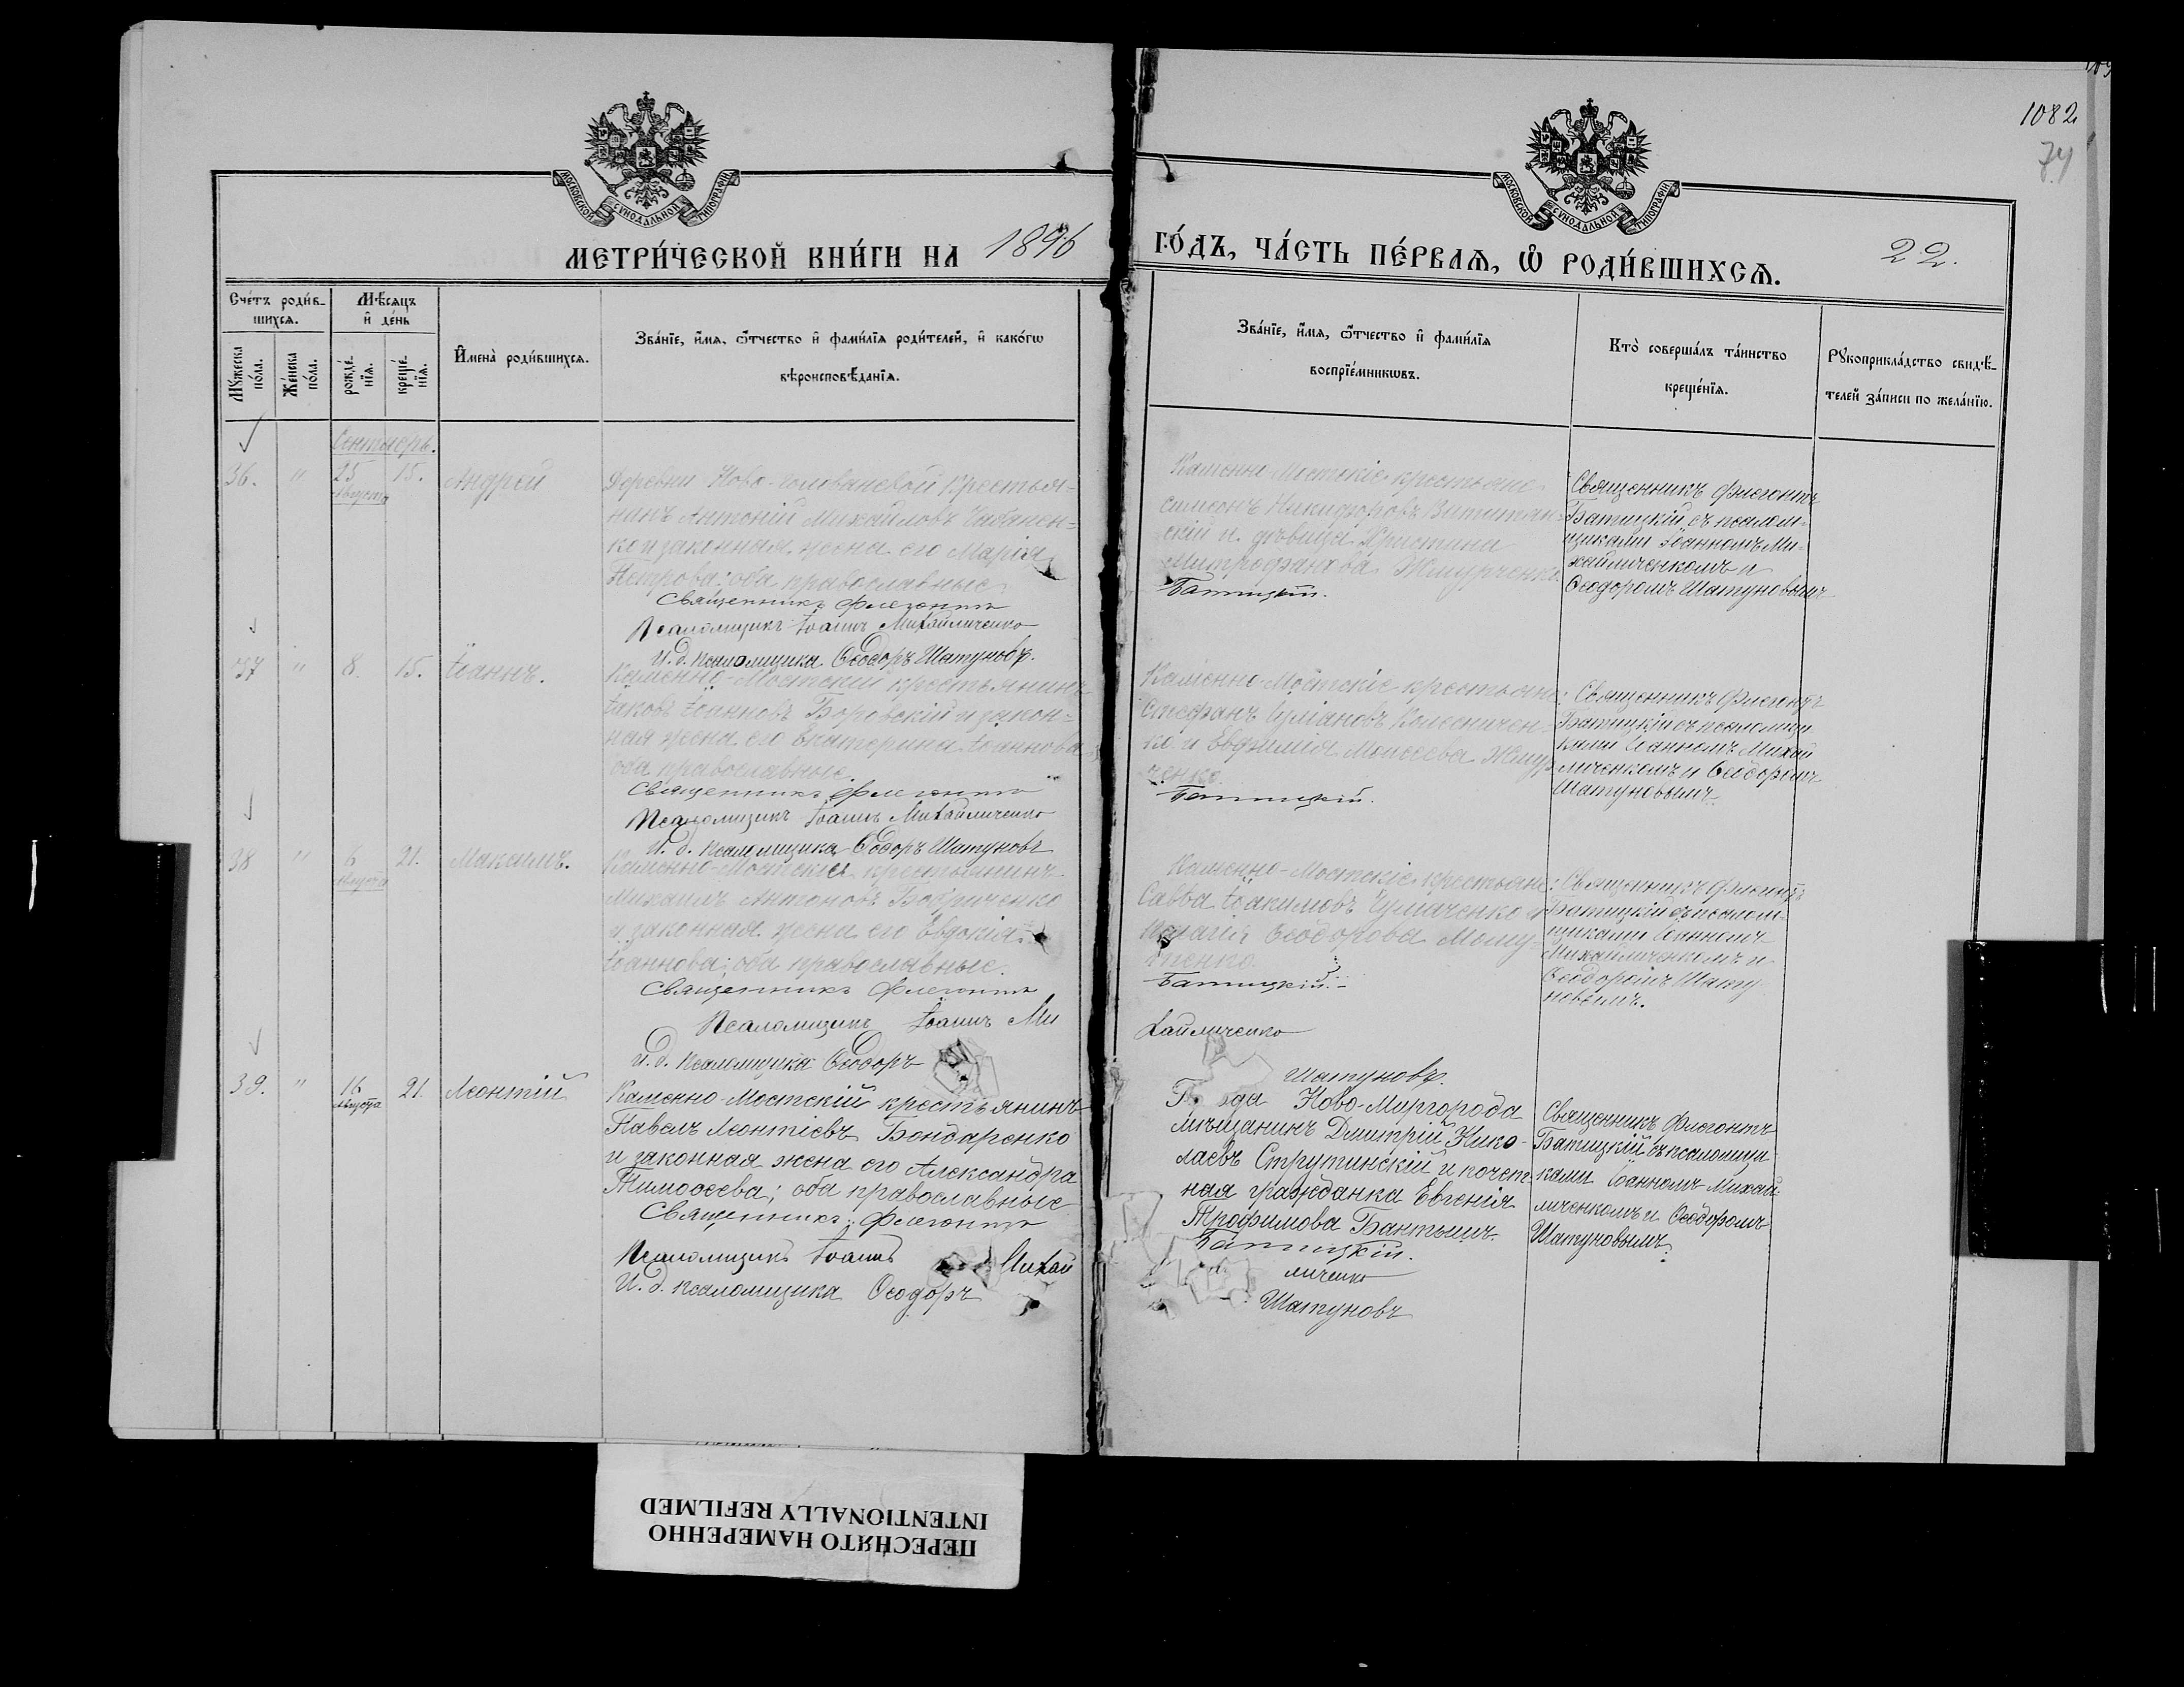 1082
74
МОСКОВСКОЙ СѴНОДАЛЬНОЙ ТИПОГРАФІИ
МОСКОВСКОЙ СѴНОДАЛЬНОЙ ТИПОГРАФІИ
МЕТРИ́ЧЕСКОЙ КНИ́ГИ НА 1896
ГО́ДЪ, ЧА́СТЬ ПЕ́РВАѦ, Ѡ҆ РОДИ́ВШИХСѦ.
22.
Сче́тъ роди́в-
шихсѧ.
Мѣ́сѧцъ
и҆ де́нь
Мꙋ́жеска по́ла.
Же́нска по́ла.
рожде́-
нїѧ.
креще́-
нїѧ.
И҆мена̀ роди́вшихсѧ.
Зва́нїе, и҆́мѧ, ѻ҆́тчество и҆ фами́лїѧ роди́телей, и҆ како́гѡ
вѣроисповѣ́данїѧ.
Зва́нїе, и҆́мѧ, ѻ҆́тчество и҆ фами́лїѧ
воспрїе́мникѡвъ.
Кто̀ соверша́лъ та́инство
креще́нїѧ.
Рꙋкоприкла́дство свидѣ́-
телей за́писи по жела́нїю.
Сентябрь.
36. " 25 Августа 15. Андрей
Деревни Ново-головановой крестья-
нинъ Антоній Михайловъ
ко и законная жена его Марія
Петрова; оба православные
Священникъ Флегонтъ
Псаломщикъ Іоаннъ Михайличенко
И. д. псаломщика Ѳеодоръ Шатуновъ.
Каменно-Мостскіе крестьяне
Симеонъ Никифоровъ
скій и дѣвица Христина
Митрофанова Жмурченко.
Батицкій.
Священникъ Флегонтъ
Батицкій съ псалом-
щиками Іоанномъ Ми-
хайличенкомъ и
Ѳеодоромъ Шатуновымъ
37 " 8. 15. Іоаннъ.
Каменно-Мостскій крестьянинъ
Іаковъ Іоанновъ Боровскій и закон-
ная жена его Екатерина Іоаннова
оба православные.
Священникъ Флегонтъ
Псаломщикъ Іоаннъ Михайличенко
И. д. псаломщика Ѳеодоръ Шатуновъ
Каменно-Мостскіе крестьяне:
Стефанъ Іуліановъ Колесничен-
ко и Евфимія Моисеева Жмур-
ченко.
Батицкій.
Священникъ Флегонтъ
Батицкій съ псаломщи-
ками Іоанномъ Михай
личенкомъ и Ѳеодоромъ
Шатуновымъ.
38 " 6 Августа 21. Максимъ.
Каменно-Мостскій крестьянинъ
Михаилъ Антоновъ Бобриченко
и законная жена его Евдокія
Іоаннова; оба православные.
Священникъ Флегонтъ
Псаломщикъ Іоаннъ Ми
И. д. псаломщика Ѳеодоръ
Каменно-Мостскіе крестьяне:
Савва Іоакимовъ Чумаченко и
Пелагія Ѳеодорова
Батицкій.
хайличенко
Шатуновъ.
Священникъ Флегонтъ
Батицкій съ псалом-
щиками Іоанномъ
Михайличенкомъ и
Ѳеодоромъ Шату
новымъ.
39. " 16 Августа 21. Леонтій
Каменно-Мостскій крестьянинъ
Павелъ Леонтіевъ Бондаренко
и законная жена его Александра
Тимоѳеева; оба православные
Священникъ Флегонтъ
Псаломщикъ Іоаннъ Михай
И. д. псаломщика Ѳеодоръ
Г да Ново-Миргорода
мѣщанинъ Дмитрій Нико-
лаевъ Струтинскій и почет-
ная гражданка Евгенія
Трофимова Бантышъ.
Батицкій.
личенко
Шатуновъ
Священникъ Флегонтъ
Батицкій съ псаломщи-
ками Іоанномъ Михай-
личенкомъ и Ѳеодоромъ
Шатуновымъ.
ПЕРЕСНЯТО НАМЕРЕННО
INTENTIONALLY REFILMED